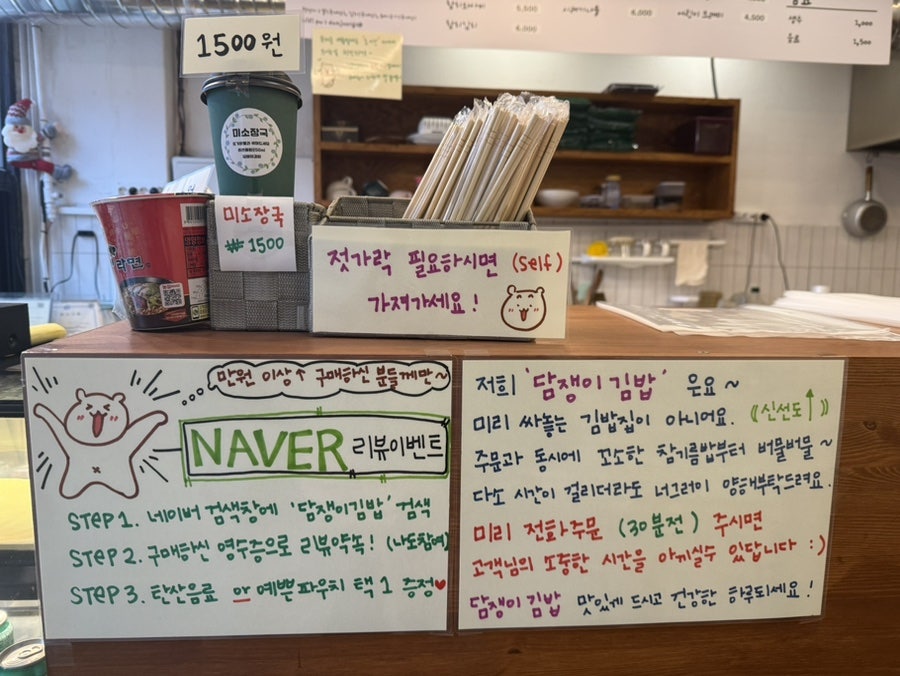 6,500
6,000
4,000
4,500
생수 1,000
음료 1,500
1500원
미소장국
미소장국
₩ 1500
라면.
젓가락 필요하시면 (self)
가져가세요!
만원 이상↑ 구매하신 분들께만~
NAVER 리뷰이벤트
STEP 1. 네이버 검색창에 '담쟁이김밥' 검색
STEP 2. 구매하신 영수증으로 리뷰약속! (나도참여)
STEP 3. 탄산음료 or 예쁜 파우치 택 1 증정♥
저희 '담쟁이 김밥' 은요~
미리 싸놓는 김밥집이 아니어요. ((신선도↑))
주문과 동시에 꼬소한 참기름밥부터 버물버물~
다소 시간이 걸리더라도 너그러이 양해부탁드려요.
미리 전화주문 (30분전) 주시면
고객님의 소중한 시간을 아끼실수 있답니다 :)
담쟁이 김밥 맛있게 드시고 건강한 하루되세요!